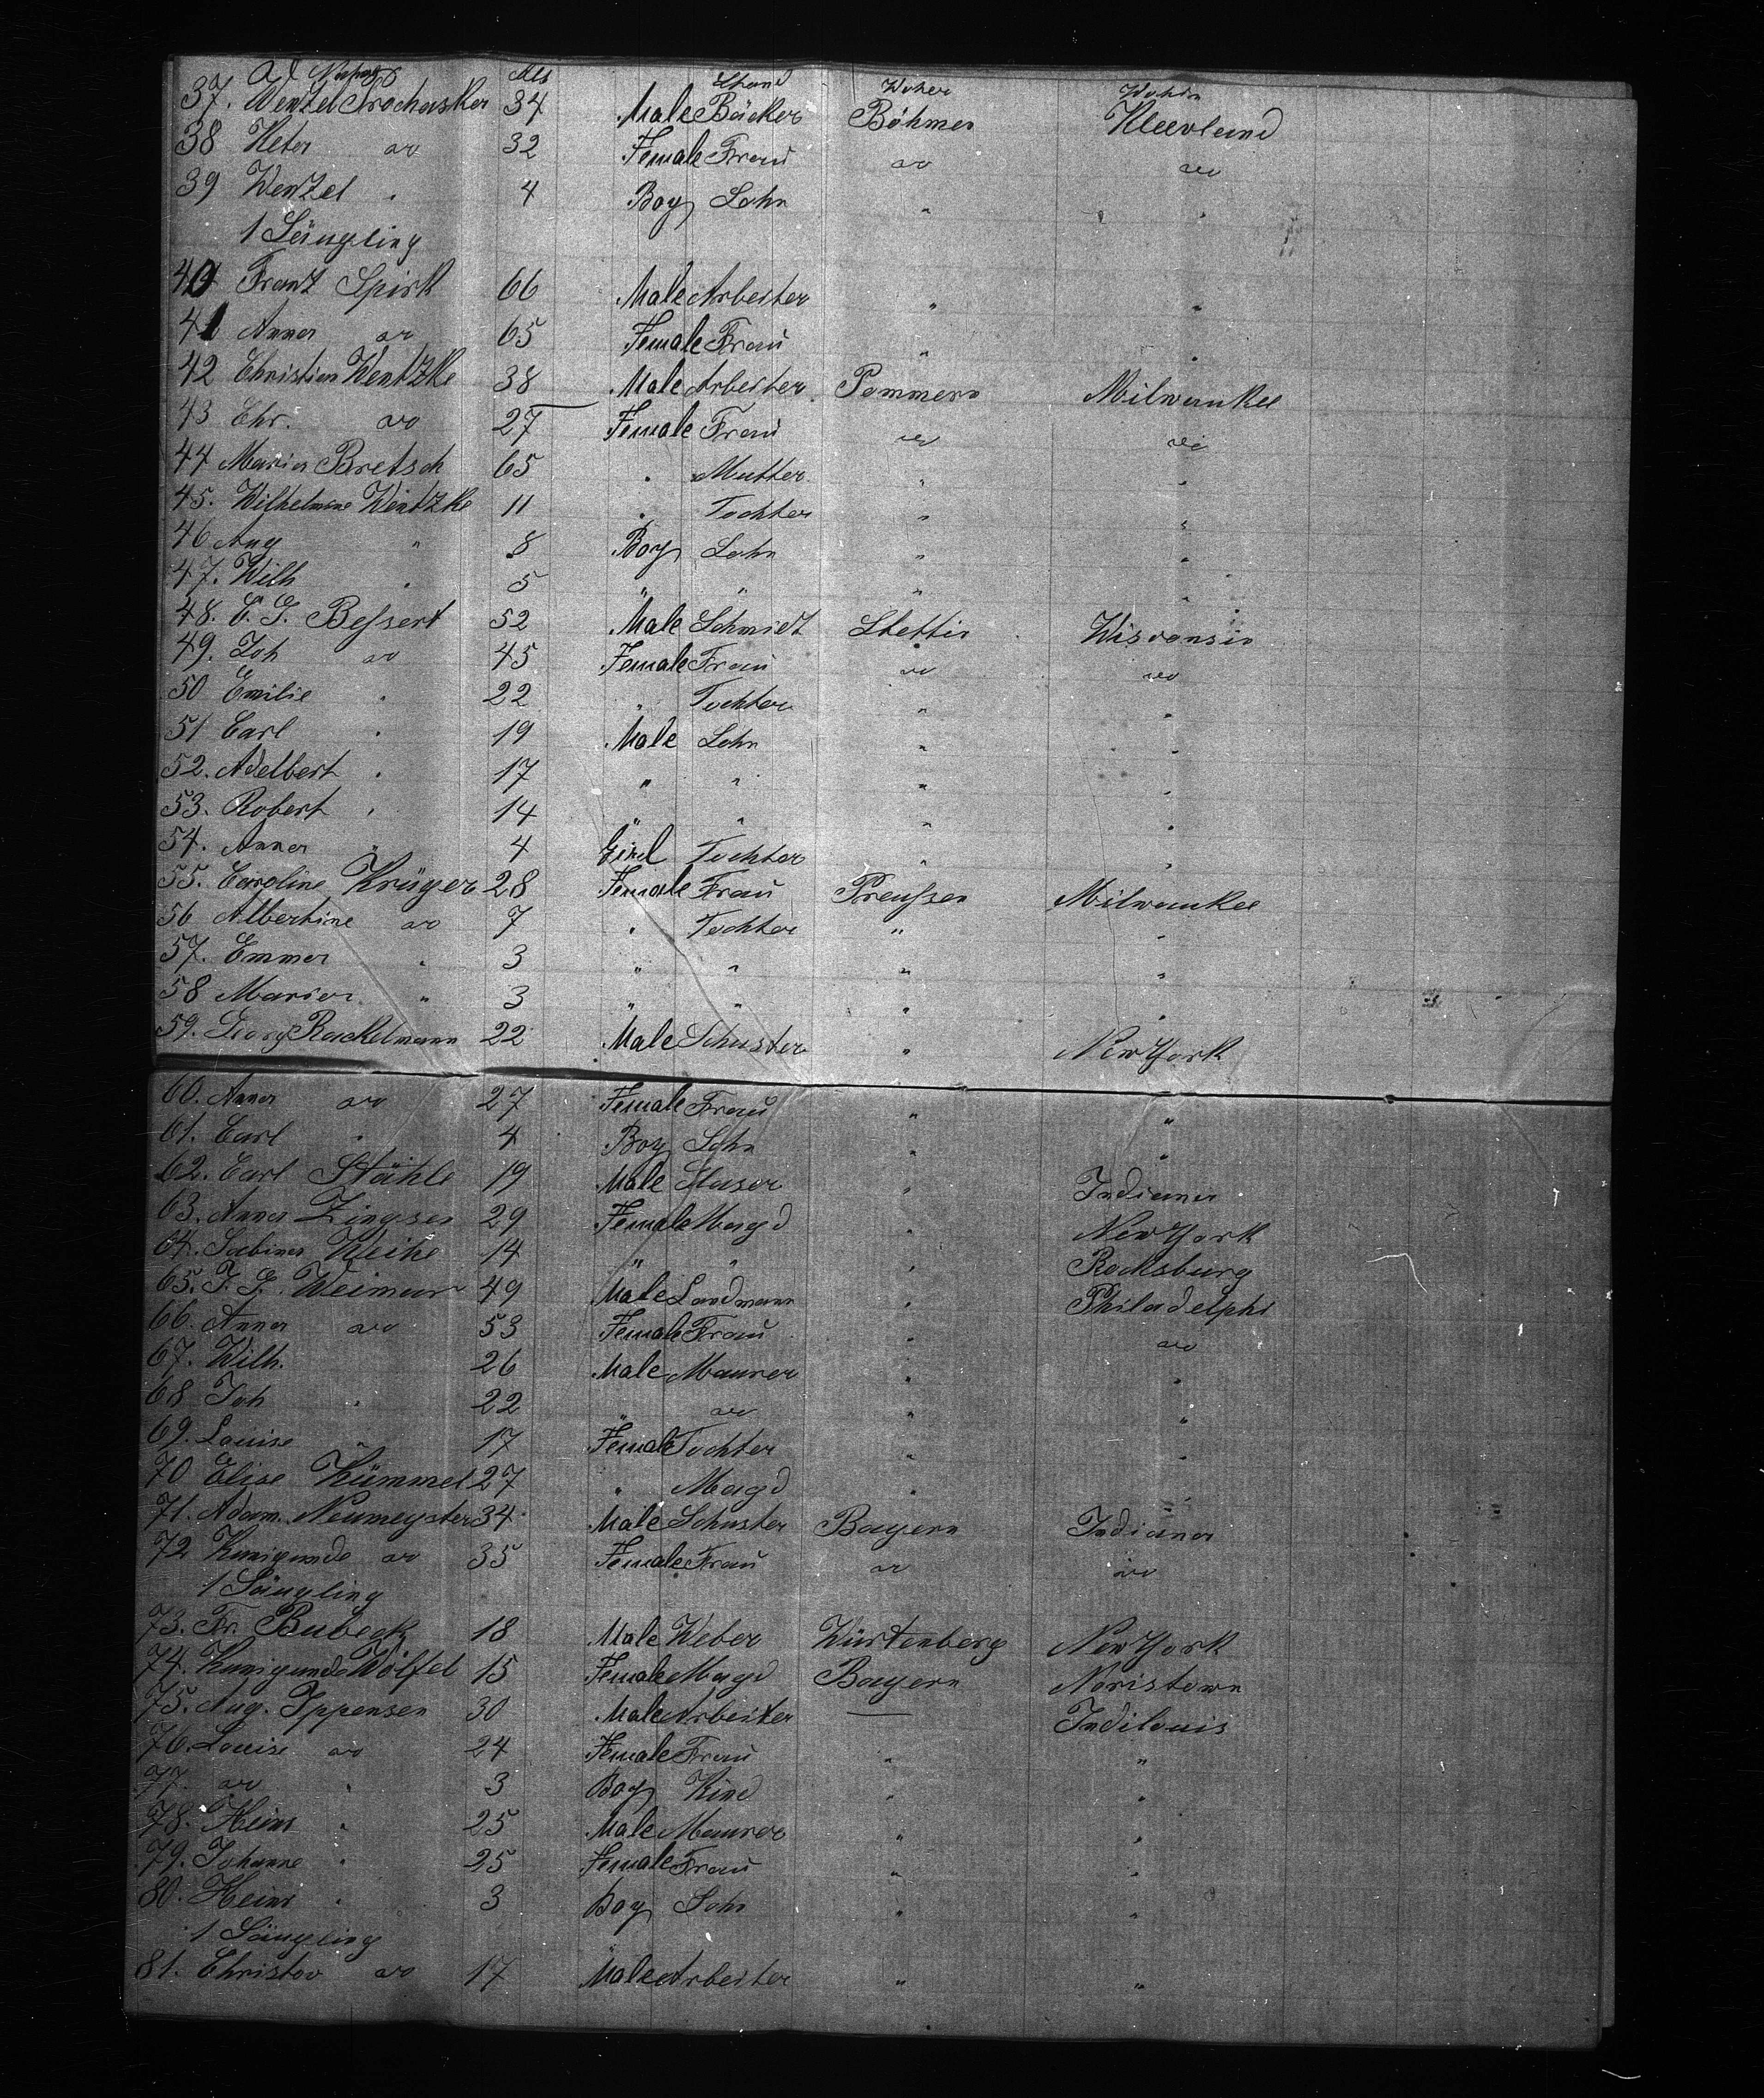 Alt Stand Woher Wohin
37. Wenzel Prochaska 34 Male Bäcker Böhmen Kleevland
38 Keter do 32 Female Frau do do
39 Wenzel . 4 Boy Sohn " "
1 Säugling
40 Franz Spirk 66 Male Arbeiter " "
41 Anna do 65 Female Frau " "
42 Christian Wentzke 38 Male Arbeiter Pommern Milwaukee
43 Chr. do 27 Female Frau do do
44 Maria Bretsch 65 " Mutter " "
45. Wilhelmine Wentzke 11 " Tochter " "
46 Aug " 8 Boy Sohn " "
47. Wilh " 5 " " " "
48. C. G. Beſsert 52 Male Schmidt Stettin Wisconsin
49. Joh do 45 Female Frau do do
50 Emilie " 22 " Tochter " "
51 Carl " 19 Male Sohn " "
52. Adelbert " 17 " " " "
53. Robert " 14 " " " "
54. Anna " 4 Girl Tochter " "
55. Caroline Krüger 28 Female Frau Preuſsen Milwaukee
56 Albertine do 7 " Tochter " "
57. Emma " 3 " " " "
58 Maria " 3 " " " "
59. Georg Rackelmann 22 Male Schuster " New York
60. Anna do 27 Female Frau " "
61. Carl " 4 Boy Sohn " "
62. Carl Stähle 19 Male Glaser " Indiana
63. Anna Zingser 29 Female Magd " New York
64. Sabina Weihe 14 " " " Rocksburg
65. J. G. Weimar 49 Male Landmann " Philadelphi
66. Anna do 53 Female Frau " do
67. Wilh. 26 Male Maurer " "
68 Joh " 22 " do " "
69. Louise " 17 Female Tochter " "
70 Elise Kümmel 27 " Magd " "
71. Adam Neumeyster 34 Male Schuster Bayern Indiana
72 Kunigunde do 35 Female Frau do do
1 Säugling
73. Fr. Bubeck 18 Male Weber Würtenberg New York
74. Kunigunde Wölfel 15 Female Magd Bayern Noristown
75. Aug. Ippensen 30 Male Arbeiter — Indilouis
76. Louise do 24 Female Frau " "
77. do " 3 Boy Kind " "
78. Heinr " 25 Male Maurer " "
79. Johanne " 25 Female Frau " "
80. Heinr " 3 Boy Sohn " "
1 Säugling
81. Christov do 17 Male Arbeiter " "